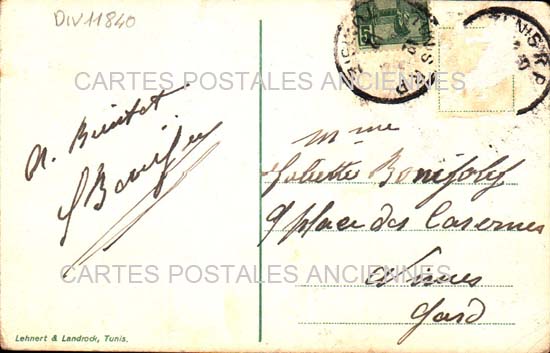 DIV11840
CARTES POSTALES ANCIENNES
5
TUNIS R.P
TUNIS R P
A. Bientot
Mme
Juliette Bonifoly
9 place des Casernes
Nimes
Gard
CARTES POSTALES ANCIENNES
Lehnert & Landrock, Tunis.